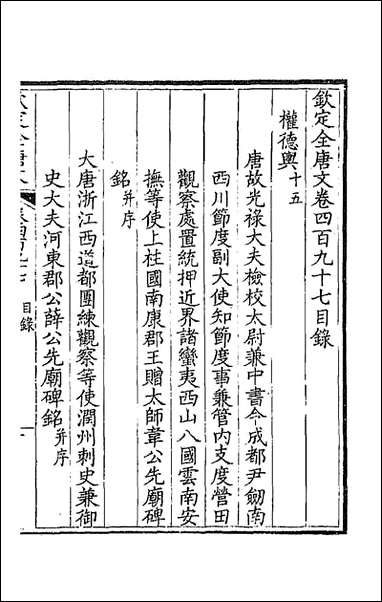 欽定全唐文卷四百九十七目錄
權德輿十五
唐故光祿大夫檢校太尉兼中書令成都尹劒南
西川節度副大使知節度事兼管內支度營田
觀察處置統押近界諸蠻夷西山八國雲南安
撫等使上柱國南康郡王贈太師韋公先廟碑
銘并序
大唐浙江西道都團練觀察等使潤州刺史兼御
史大夫河東郡公薛公先廟碑銘并序
欽定全唐文 卷四百九十七 目錄 一